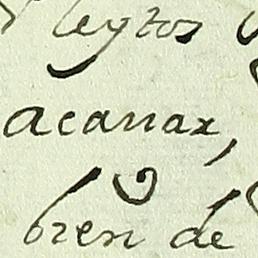 leytos
acanax,
bren de